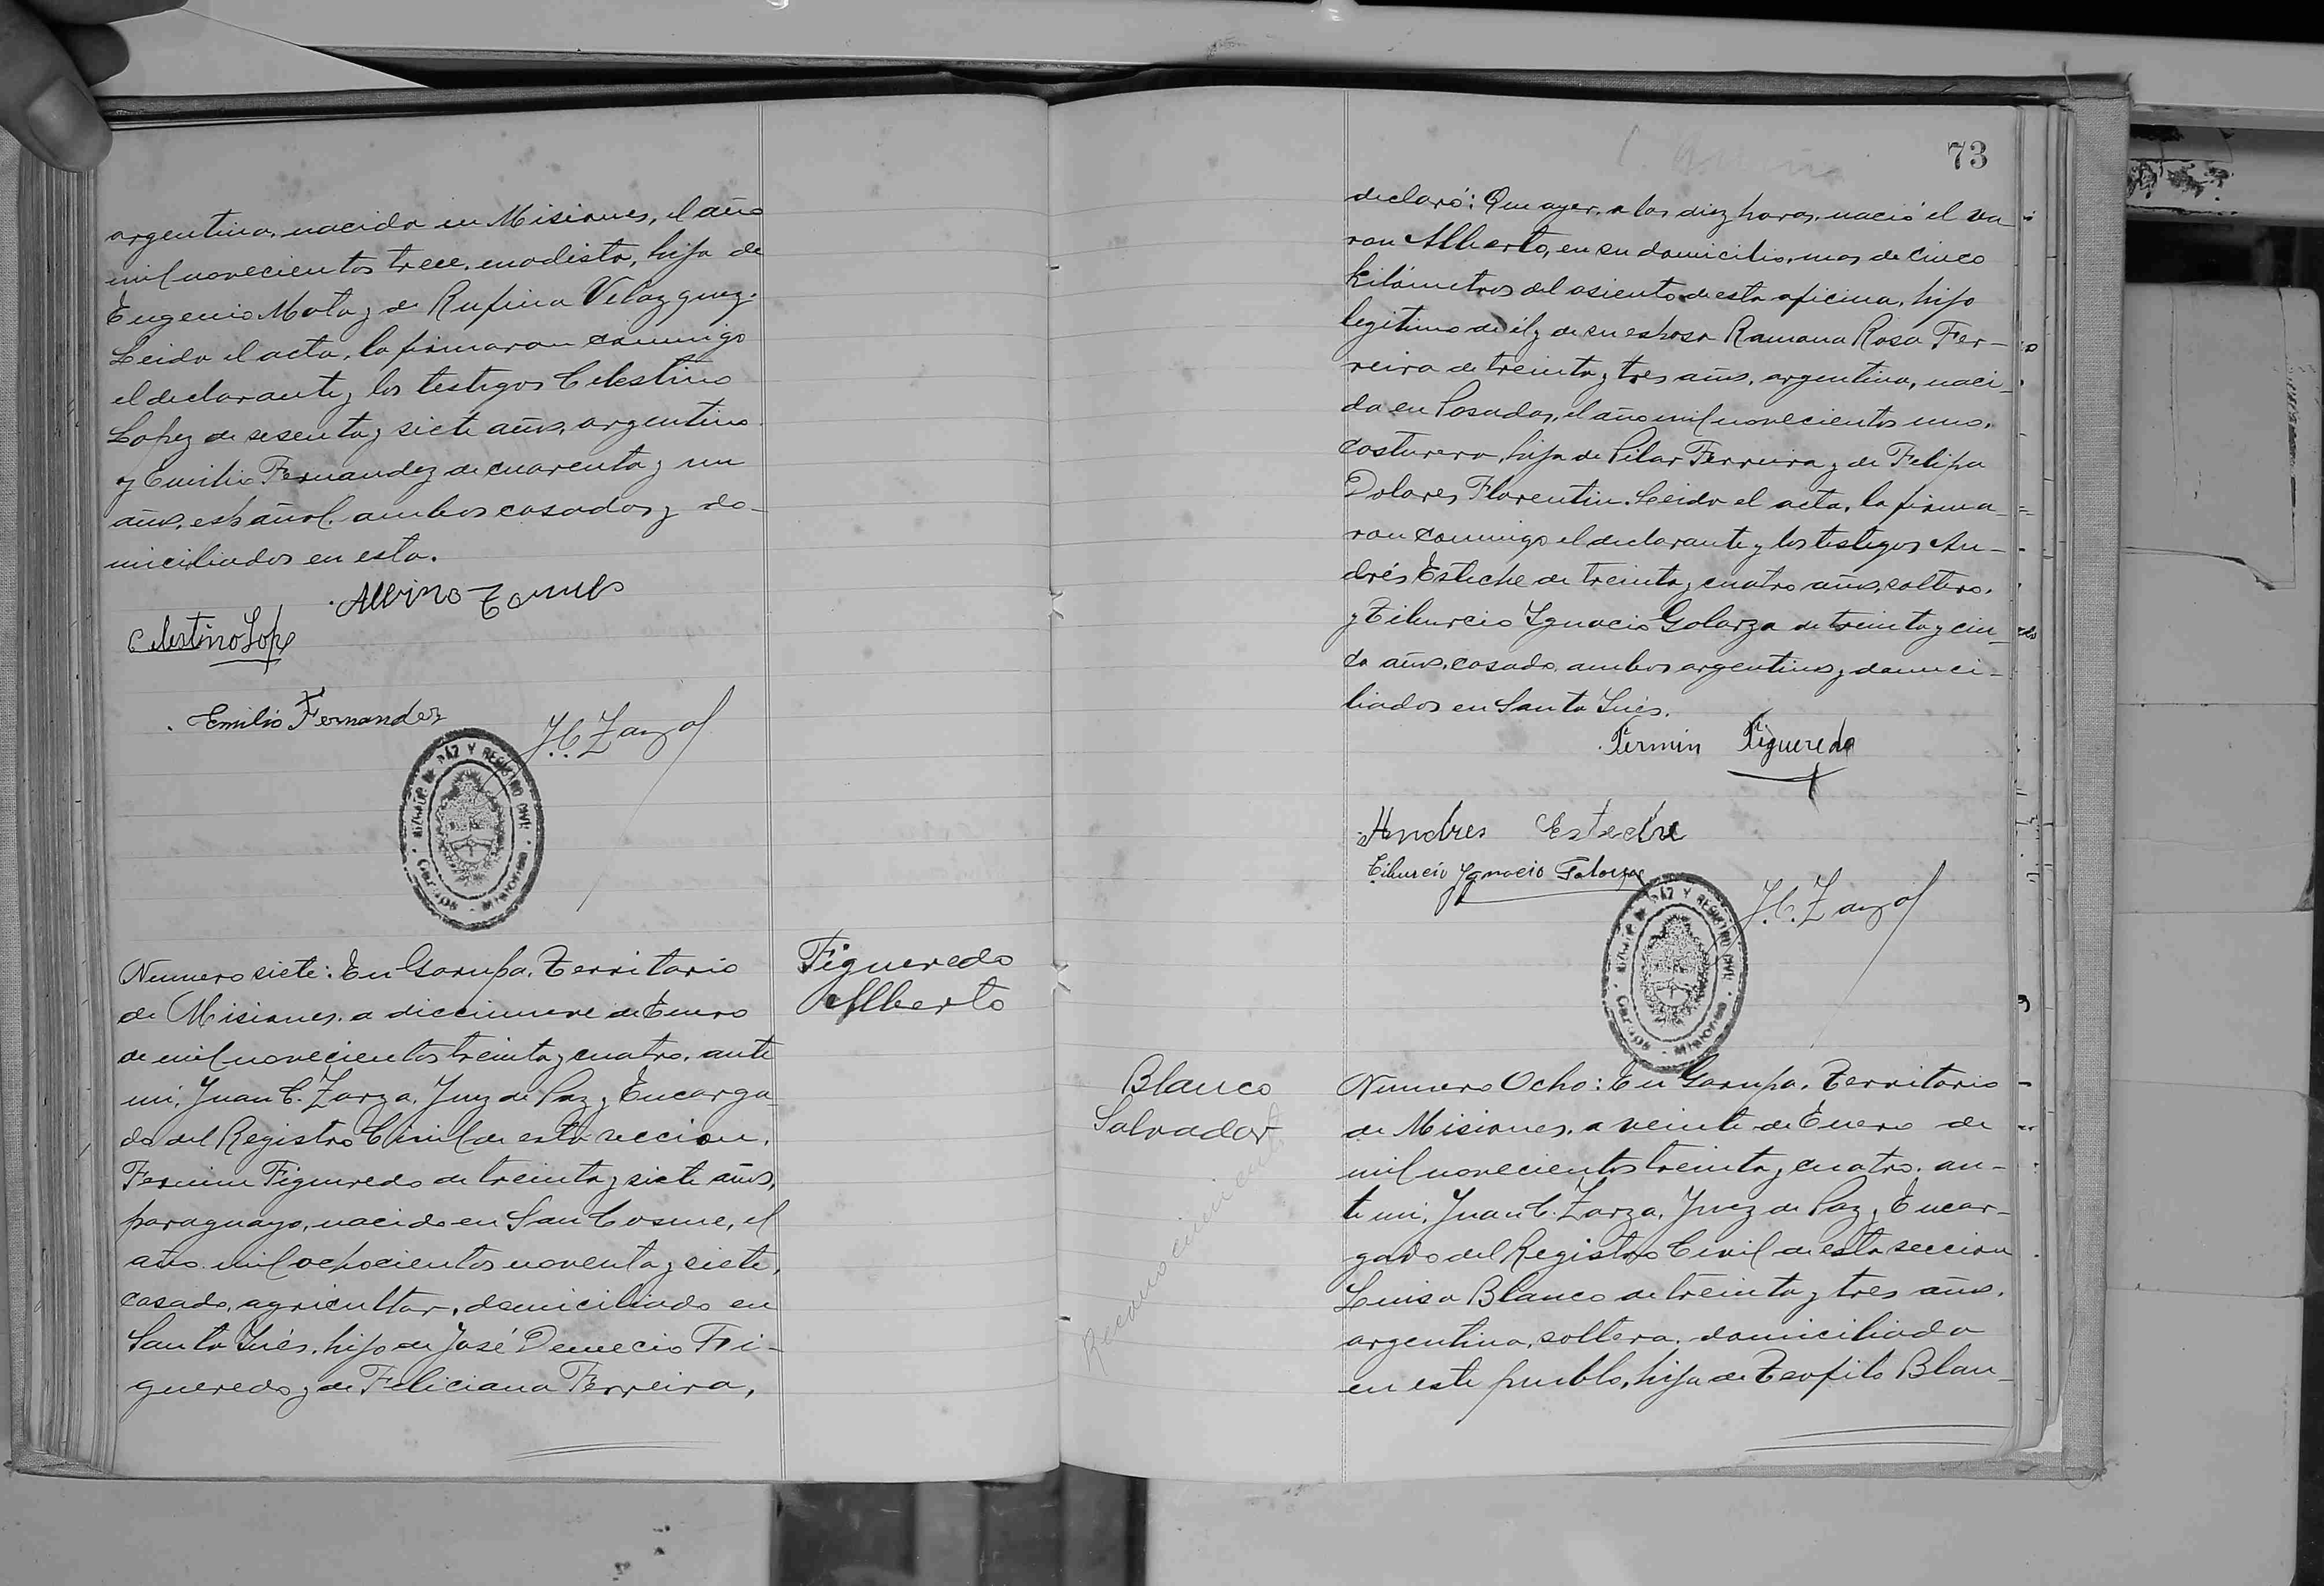 argentina, nacida en Misiones, el año
mil novecientos trece, modista, hija de
Eugenio Mota y de Rufina Velazquez.
Leida el acta, la firmaron conmigo
el declarante y los testigos Celestino
Lopez de sesenta y siete años, argentino
y Emilio Fernandez de cuarenta y un
años, español, ambos casados y do-
miciliados en esta.
Albino
Celestino Lope
Emilio Fernandez
J. C. Zarza
JUZGADO DE PAZ Y REGISTRO CIVIL
GARUPA - MISIONES
Numero siete: En Garupa, Territorio
de Misiones, a diecinueve de Enero
de mil novecientos treinta y cuatro, ante
mi, Juan C. Zarza, Juez de Paz y Encarga-
do del Registro Civil de esta seccion,
Fermin Figueredo de treinta y siete años,
paraguayo, nacido en San Cosme, el
año mil ochocientos noventa y siete,
casado, agricultor, domiciliado en
Santa Inés, hijo de José Demecio Fi-
gueredo y de Feliciana Ferreira,
Figueredo
Alberto
73
declaró: Que ayer, a las diez horas, nació el va-
ron Alberto, en su domicilio, mas de cinco
kilómetros del asiento de esta oficina, hijo
legitimo de él y de su esposa Ramona Rosa Fer-
reira de treinta y tres años, argentina, naci-
da en Posadas, el año mil novecientos uno,
costurera, hija de Pilar Ferreira y de Felipa
Dolores Florentin. Leida el acta, la firma-
ron conmigo el declarante y los testigos An-
drés Esteche de treinta y cuatro años, soltero,
y Tiburcio Ignacio Galarza de treinta y cin-
co años, casado, ambos argentinos y domici-
liados en Santa Inés.
Fermin Figueredo
Andres Esteche
Tiburcio Ignacio Galarza
J. C. Zarza
JUZGADO DE PAZ Y REGISTRO CIVIL
GARUPA - MISIONES
Blanco
Salvador
Reconocimiento
Numero Ocho: En Garupa, Territorio
de Misiones, a veinte de Enero de
mil novecientos treinta y cuatro, an-
te mi, Juan C. Zarza, Juez de Paz y Encar-
gado del Registro Civil de esta seccion
Luisa Blanco de treinta y tres años,
argentina, soltera, domiciliada
en este pueblo, hija de Teofilo Blan-